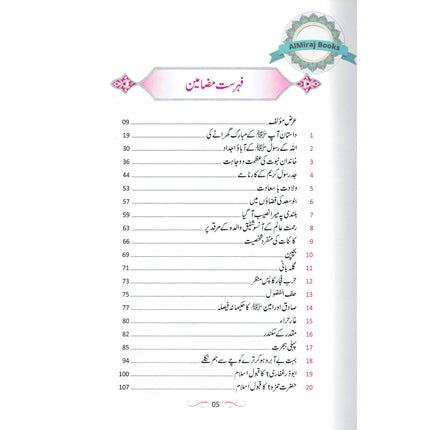 AlMiraj Books
فہرست مضامین
عرض مؤلف 09
1 داستان آپ ﷺ کے مبارک گھرانے کی 19
2 اللہ کے رسول ﷺ کے آباؤ اجداد 30
3 خاندان نبوت کی عظمت و وجاہت 36
4 جد رسول کریم کے کارنامے 44
5 ولادت باسعادت 53
6 بنو سعد کی فضاؤں میں 57
7 بلندی پہ میرا نصیب آ گیا 59
8 رحمت عالم کے آنسو شفیق والدہ کے مرقد پر 63
9 کائنات کی منفرد شخصیت 66
10 بچپن 69
11 گلہ بانی 71
12 حرب فجار کا پس منظر 73
13 حلف الفضول 75
14 صادق اور امین ﷺ کا حکیمانہ فیصلہ 77
15 غار حراء 80
16 مقدر کے سکندر 82
17 پہلی ہجرت 87
18 بہت بے آبرو ہو کر ترے کوچے سے ہم نکلے 94
19 ابوذر غفاری کا قبول اسلام 100
20 حضرت حمزہ کا قبول اسلام 107
05